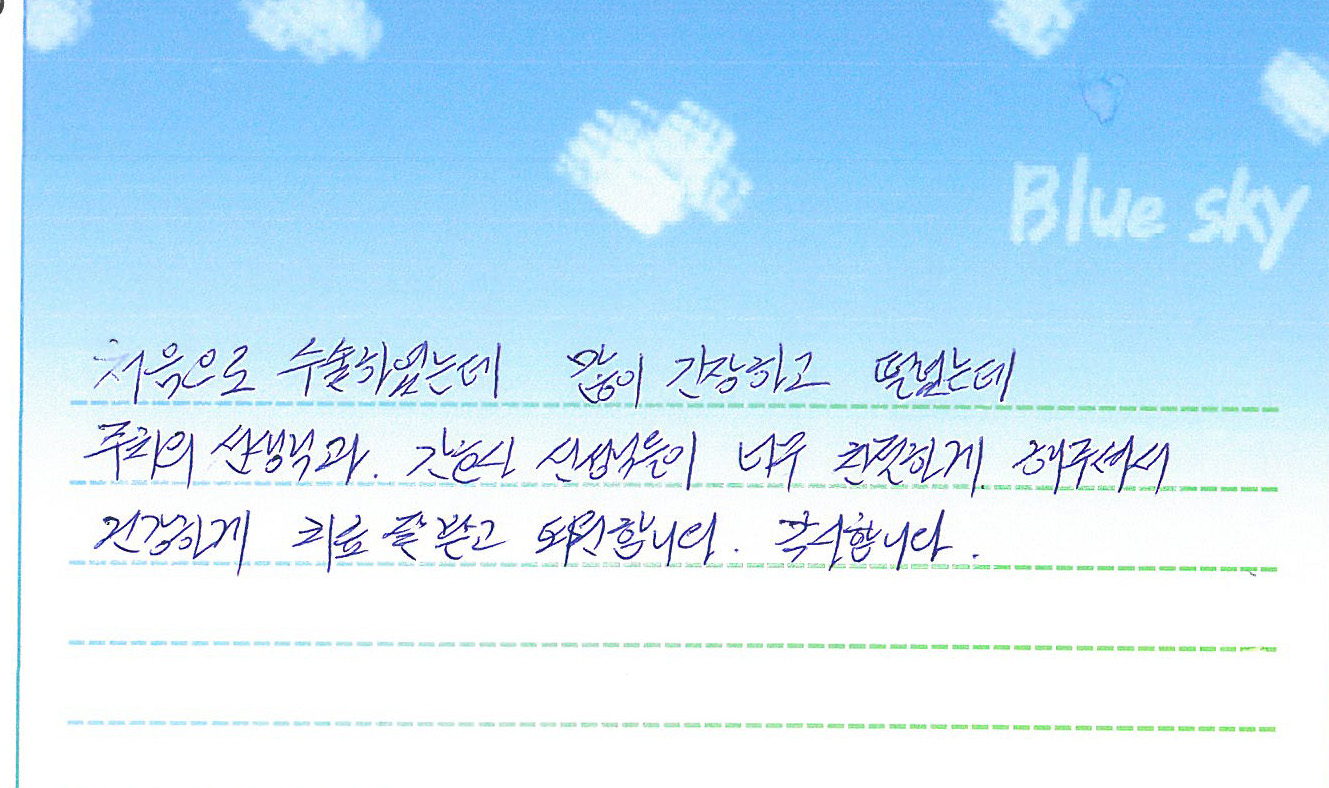 Blue sky
처음으로 수술하였는데 많이 긴장하고 떨렸는데
주치의 선생님과. 간호사 선생님들이 너무 친절하게. 해주셔서
건강하게 치료 잘 받고 퇴원합니다. 감사합니다.